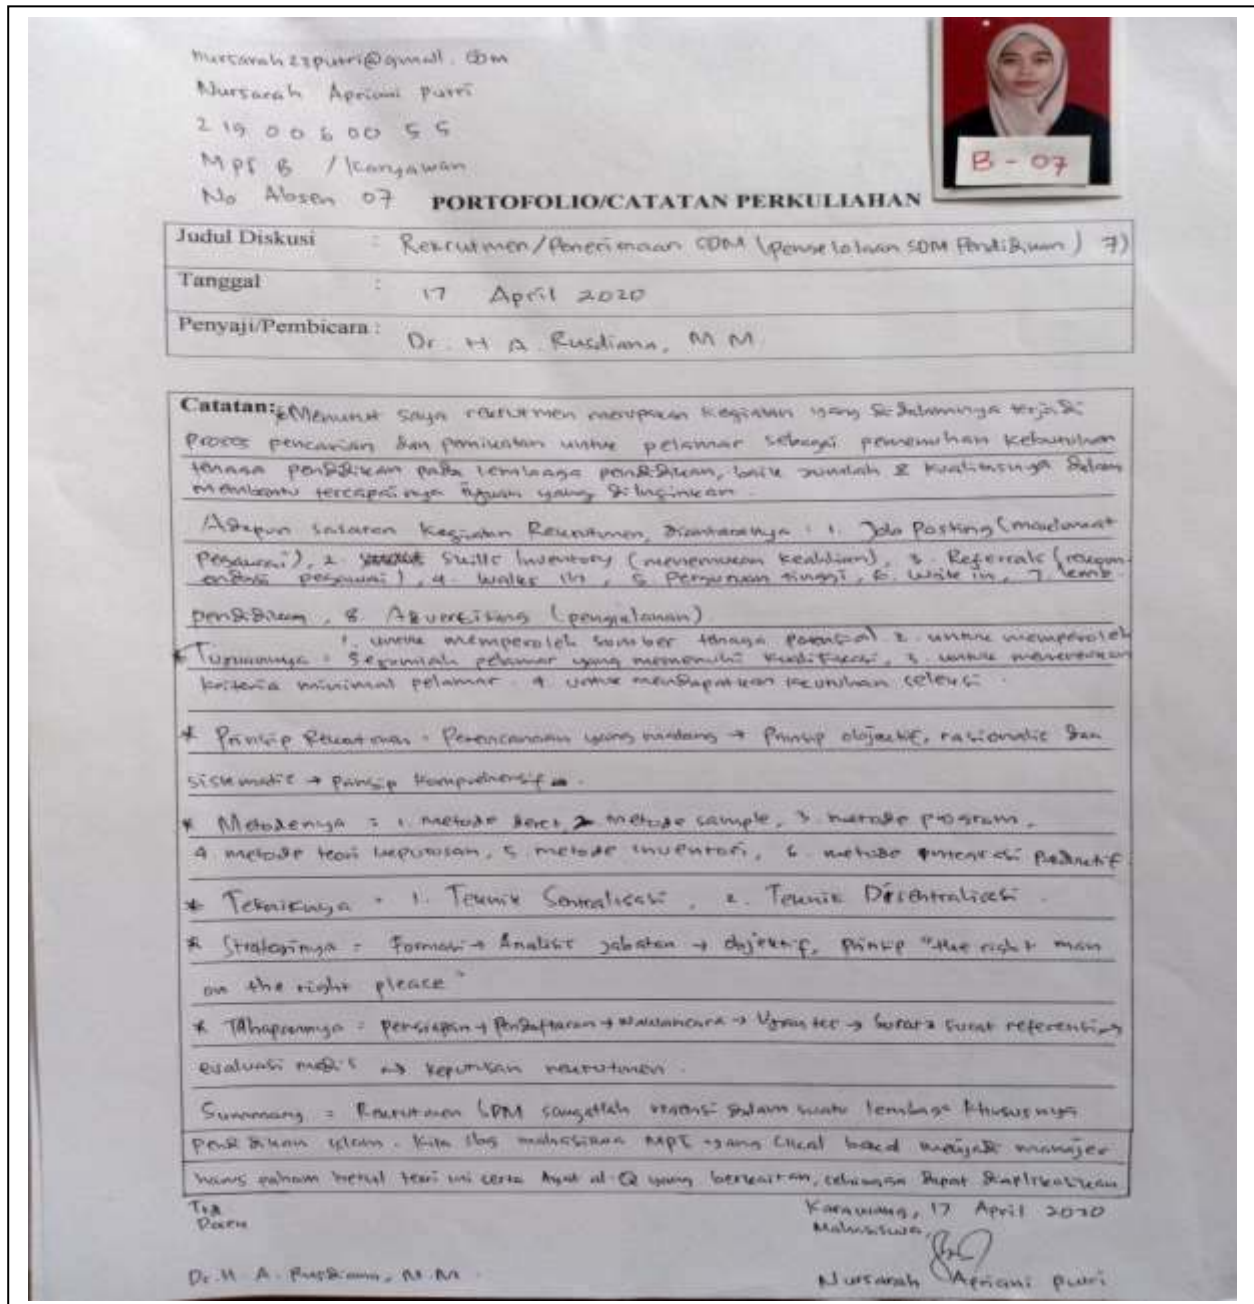 nursarah28putri@gmail.com
Nursarah Apriani Putri
2190060055
MPI B / Karyawan
B - 07
No Absen 07 PORTOFOLIO/CATATAN PERKULIAHAN
Judul Diskusi : Rekrutmen/Penerimaan SDM (pengelolaan SDM Pendidikan) 7)
Tanggal : 17 April 2020
Penyaji/Pembicara : Dr. H A. Rusdiana, M M.
Catatan: * Menurut saya rekrutmen merupakan kegiatan yang didalamnya terjadi
proses pencarian dan pemikatan untuk pelamar sebagai pemenuhan kebutuhan
tenaga pendidikan pada lembaga pendidikan, baik jumlah & kualitasnya dalam
membantu tercapainya tujuan yang diinginkan.
Adapun sasaran kegiatan Rekrutmen, diantaranya : 1. Job Posting (maklumat
Pegawai), 2. Skills Inventory (menemukan keahlian), 3. Referrals (rekom
endasi pegawai), 4. Walks in, 5. Perguruan tinggi, 6. Write in, 7. Lemb.
pendidikan, 8. Advertising (pengiklanan)
1. untuk memperoleh sumber tenaga potensial 2. untuk memperoleh
* Tujuannya = sejumlah pelamar yang memenuhi kualifikasi, 3. untuk menentukan
kriteria minimal pelamar. 4. untuk mendapatkan kebutuhan seleksi.
* Prinsip Rekrutmen = Perencanaan yang matang → Prinsip objektif, rasionalis dan
sistematis → Prinsip Komprehensif.
* Metodenya = 1. metode deret, 2 metode sample, 3 metode program,
4. metode teori keputusan, 5. metode inventori, 6. metode Produktif
* Tekniknya = 1. Teknik Sentralisasi, 2. Teknik Disentralisasi.
* Strateginya = Formasi → Analisis jabatan → objektif, prinsip "the right man
on the right pleace"
* Tahapannya = persiapan → Pendaftaran → Wawancara → Ujian tes → Surat2 surat referensi →
evaluasi medis → keputusan rekrutmen.
Summary = Rekrutmen SDM sangatlah urgensi dalam suatu lembaga khususnya
pendidikan islam. Kita sbg mahasiswa MPI yang cikal bakal menjadi manajer
harus paham betul teori ini serta Ayat al-Q yang berkaitan, sehingga dapat diaplikasikan
Ttd
Dosen
Karawang, 17 April 2020
Mahasiswa,
Dr. H. A. Rusdiana, M.M.
Nursarah Apriani Putri